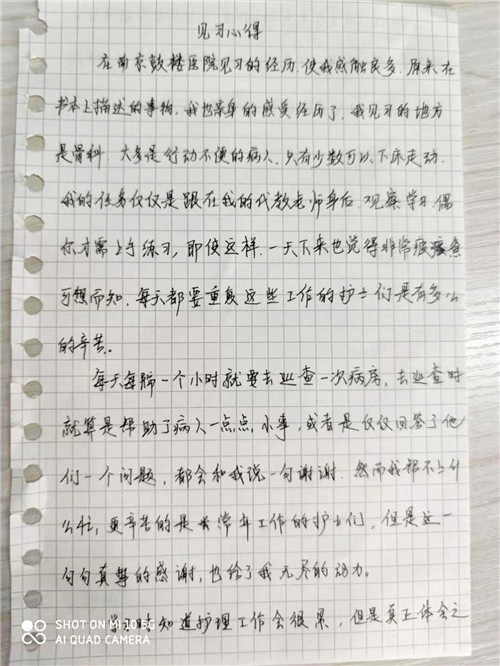 见习心得
在南京鼓楼医院见习的经历,使我感触良多.原来在
书本上描述的事物,我也亲身的感受经历了,我见习的地方
是骨科,大多是行动不便的病人,只有少数可以下床走动.
我的任务仅仅是跟在我的代教老师身后,观察学习,偶
尔才需上手练习,即使这样.一天下来也觉得非常疲惫
可想而知,每天都要重复这些工作的护士们是有多么
的辛苦。
每天每隔一个小时就要去巡查一次病房,去巡查时
就算是帮助了病人一点点小事,或者是仅仅回答了他
们一个问题,都会和我说一句谢谢.然而我帮不上什
么忙,更辛苦的是常年工作的护士们,但是这一
句句真挚的感谢,也给了我无尽的动力。
知道护理工作会很累,但是真正体会之
SHOT ON MI 10 5G
AI QUAD CAMERA